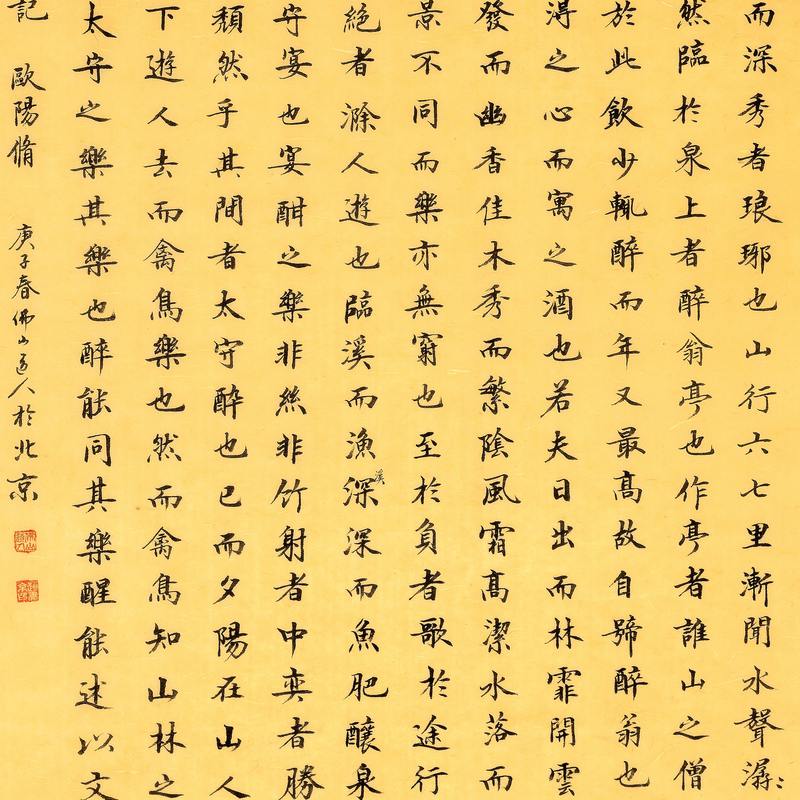 而深秀者琅琊也山行六七里漸聞水聲潺〻
然臨於泉上者醉翁亭也作亭者誰山之僧
於此飲少輒醉而年又最高故自號醉翁也
淂之心而寓之酒也若夫日出而林霏開雲
發而幽香佳木秀而繁陰風霜高潔水落而
景不同而樂亦無窮也至於負者歌於途行
絕者滁人遊也臨溪而漁深溪深而魚肥釀泉
守宴也宴酣之樂非絲非竹射者中奕者勝
頹然乎其間者太守醉也已而夕陽在山人
下遊人去而禽鳥樂也然而禽鳥知山林之
太守之樂其樂也醉能同其樂醒能述以文
記 歐陽脩 庚子春佛山道人於北京